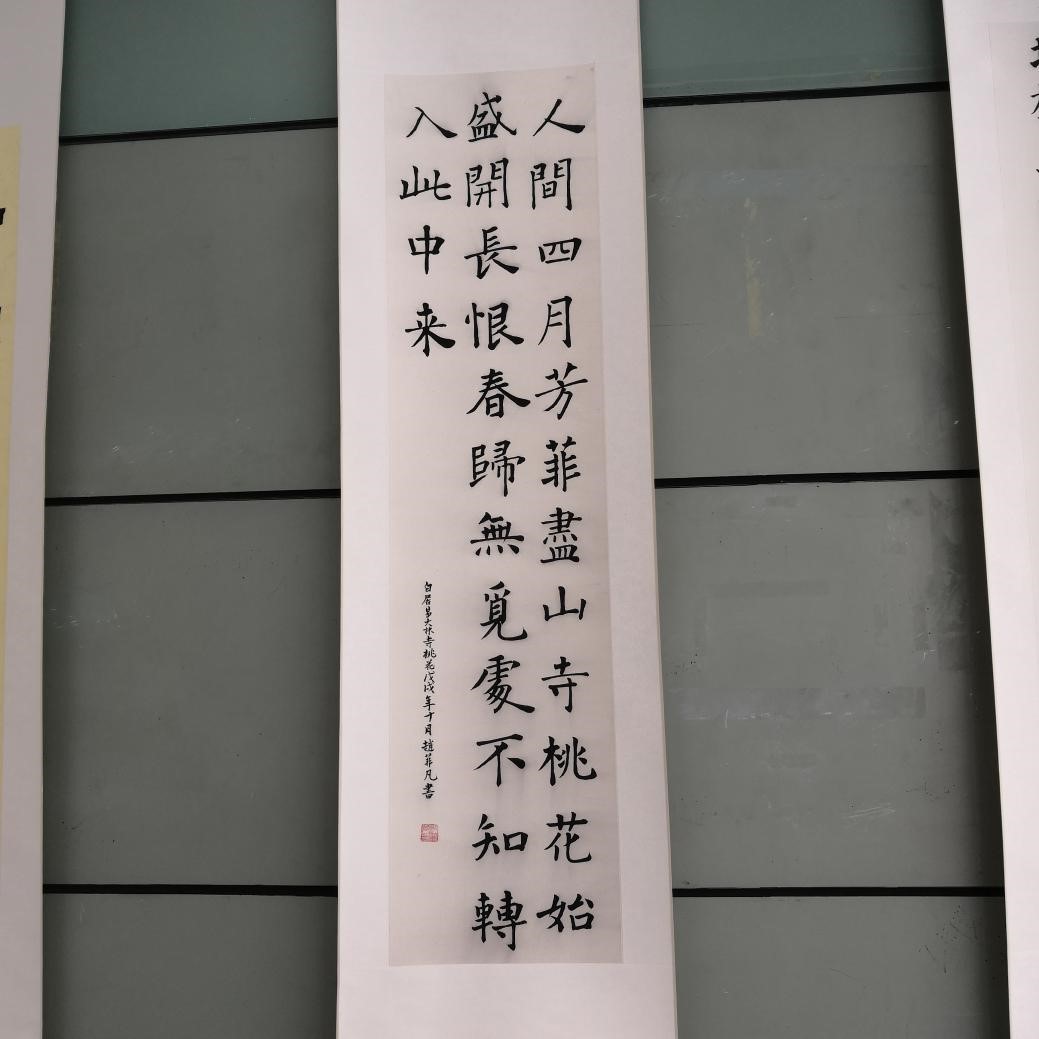 人間四月芳菲盡山寺桃花始
盛開長恨春歸無覓處不知轉
入此中来
白居易大林寺桃花戊戌年十月趙菲凡書